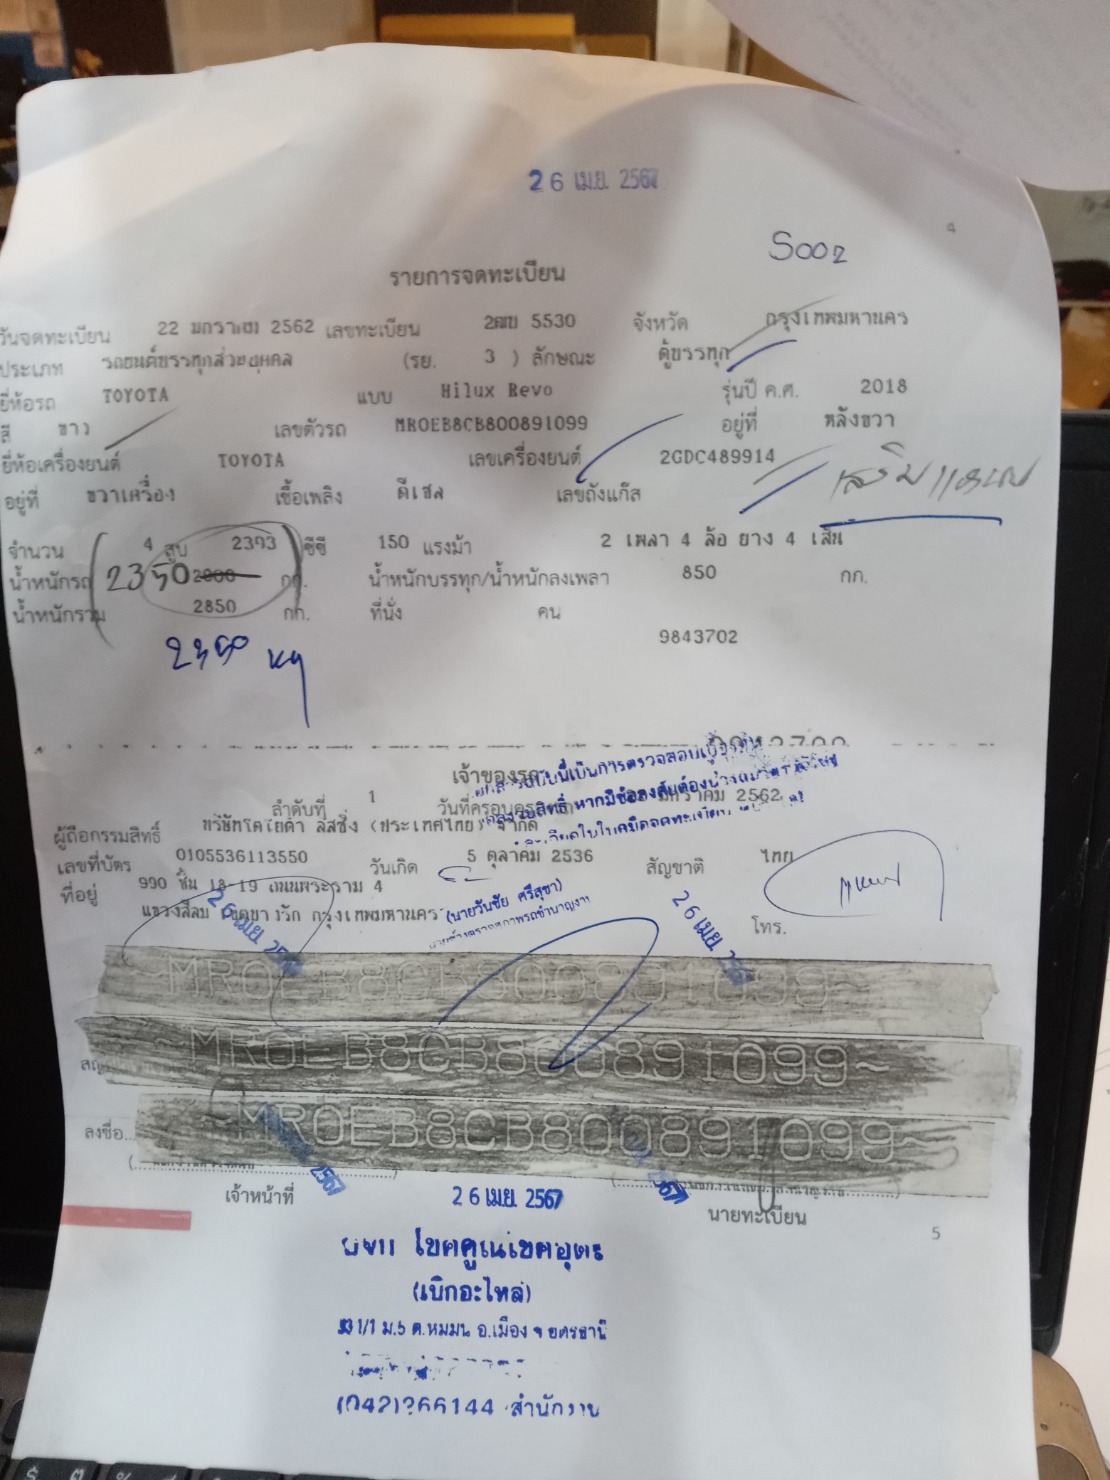 26 เม.ย. 2567
4
S002
รายการจดทะเบียน
วันจดทะเบียน 22 มกราคม 2562 เลขทะเบียน 2ฒข 5530 จังหวัด กรุงเทพมหานคร
ประเภท รถยนต์บรรทุกส่วนบุคคล (รย. 3 ) ลักษณะ ตู้บรรทุก
ยี่ห้อรถ TOYOTA แบบ Hilux Revo รุ่นปี ค.ศ. 2018
สี ขาว เลขตัวรถ MR0EB8CB800891099 อยู่ที่ หลังขวา
ยี่ห้อเครื่องยนต์ TOYOTA เลขเครื่องยนต์ 2GDC489914
เสริมแหนบ
อยู่ที่ ขวาเครื่อง เชื้อเพลิง ดีเซล เลขถังแก๊ส
จำนวน 4 สูบ 2393 ซีซี 150 แรงม้า 2 เพลา 4 ล้อ ยาง 4 เส้น
น้ำหนักรถ 2350 2000 กก. น้ำหนักบรรทุก/น้ำหนักลงเพลา 850 กก.
น้ำหนักรวม 2850 กก. ที่นั่ง คน
9843702
2350 kg
เจ้าของรถ
ลำดับที่ 1 วันที่ครอบครองรถ มกราคม 2562
ผู้ถือกรรมสิทธิ์ บริษัทโตโยต้า ลีสซิ่ง (ประเทศไทย) จำกัด
เลขที่บัตร 0105536113550 วันเกิด 5 ตุลาคม 2536 สัญชาติ ไทย
ที่อยู่ 990 ชั้น 18-19 ถนนพระราม 4
แขวงสีลม เขตบางรัก กรุงเทพมหานคร โทร.
(นายวันชัย ศรีสุขา)
26 เม.ย. 2567
26 เม.ย. 2567
~MR0EB8CB800891099~
~MR0EB8CB800891099~
~MR0EB8CB800891099~
ลงชื่อ
2567
2567
เจ้าหน้าที่ 26 เม.ย. 2567 นายทะเบียน
5
(เบิกอะไหล่)
1/1 ม.5 ต.หมูม่น อ.เมือง จ อุดรธานี
(042)266144 สำนักงาน